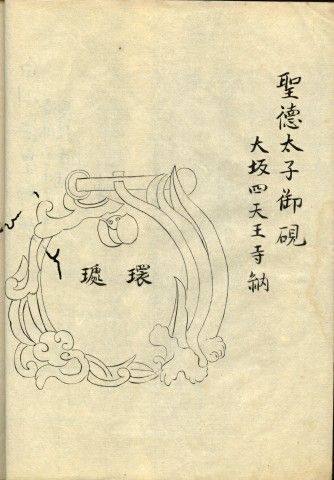 聖德太子御硯
大坂四天王寺納
環